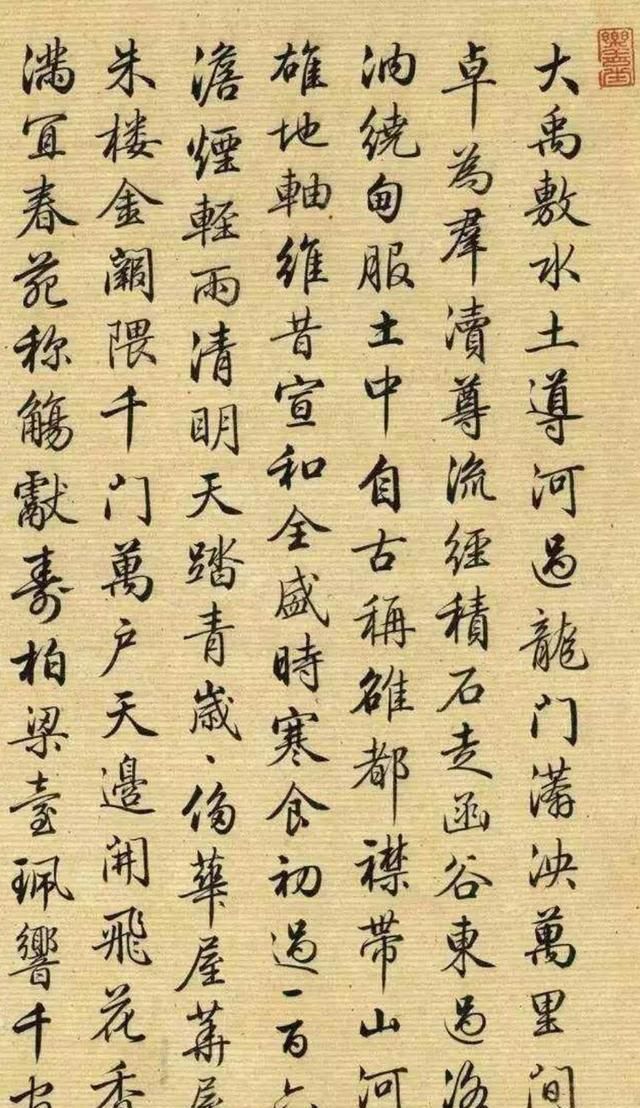 大禹敷水土導河過龍门漭泱萬里间
卓為羣瀆尊流經積石走函谷東過洛
汭繞甸服土中自古稱雄都襟带山河
雄地軸維昔宣和全盛時寒食初過一百六
澹煙輕雨清明天踏青歲〻侈華屋華屋
朱楼金闕隈千门萬户天邊開飛花香
滿宜春苑称觴獻壽柏梁臺珮響千官